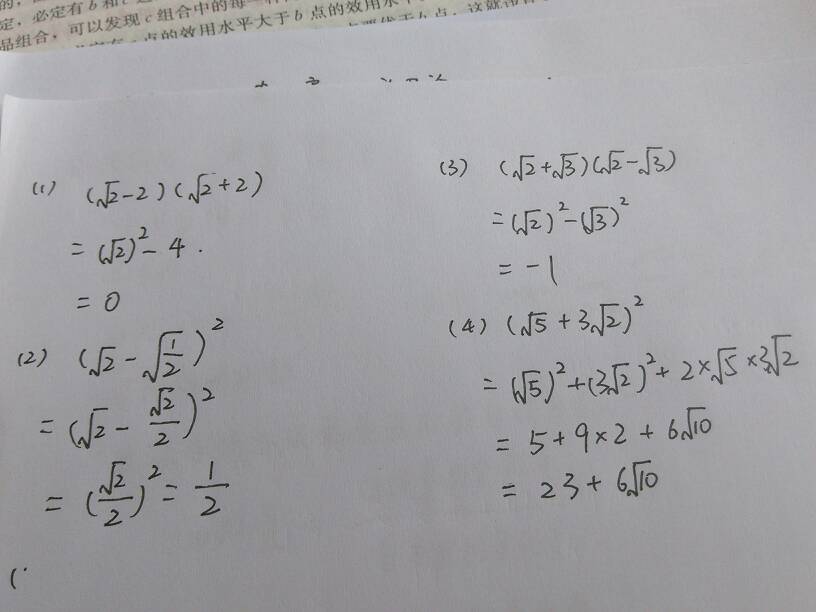 定，必定有b和c
品组合，可以发现c组合中的每一种
点的效用水平大于b点的效用水
(1) (√2-2)(√2+2)
= (√2)²-4.
= 0
(2) (√2-√(1/2))²
= (√2-√2/2)²
= (√2/2)² = 1/2
(3) (√2+√3)(√2-√3)
= (√2)²-(√3)²
= -1
(4) (√5+3√2)²
= (√5)²+(3√2)²+2×√5×3√2
= 5+9×2+6√10
= 23+6√10
(